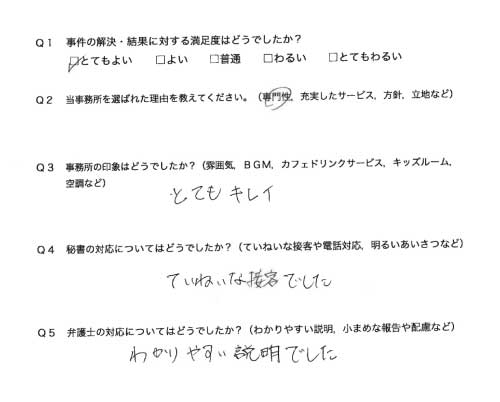 Q1 事件の解決・結果に対する満足度はどうでしたか?
□とてもよい □よい □普通 □わるい □とてもわるい
Q2 当事務所を選ばれた理由を教えてください。(専門性，充実したサービス，方針，立地など)
Q3 事務所の印象はどうでしたか?(雰囲気，BGM，カフェドリンクサービス，キッズルーム，
空調など)
とてもキレイ
Q4 秘書の対応についてはどうでしたか?(ていねいな接客や電話対応，明るいあいさつなど)
ていねいな接客でした
Q5 弁護士の対応についてはどうでしたか?(わかりやすい説明，小まめな報告や配慮など)
わかりやすい説明でした